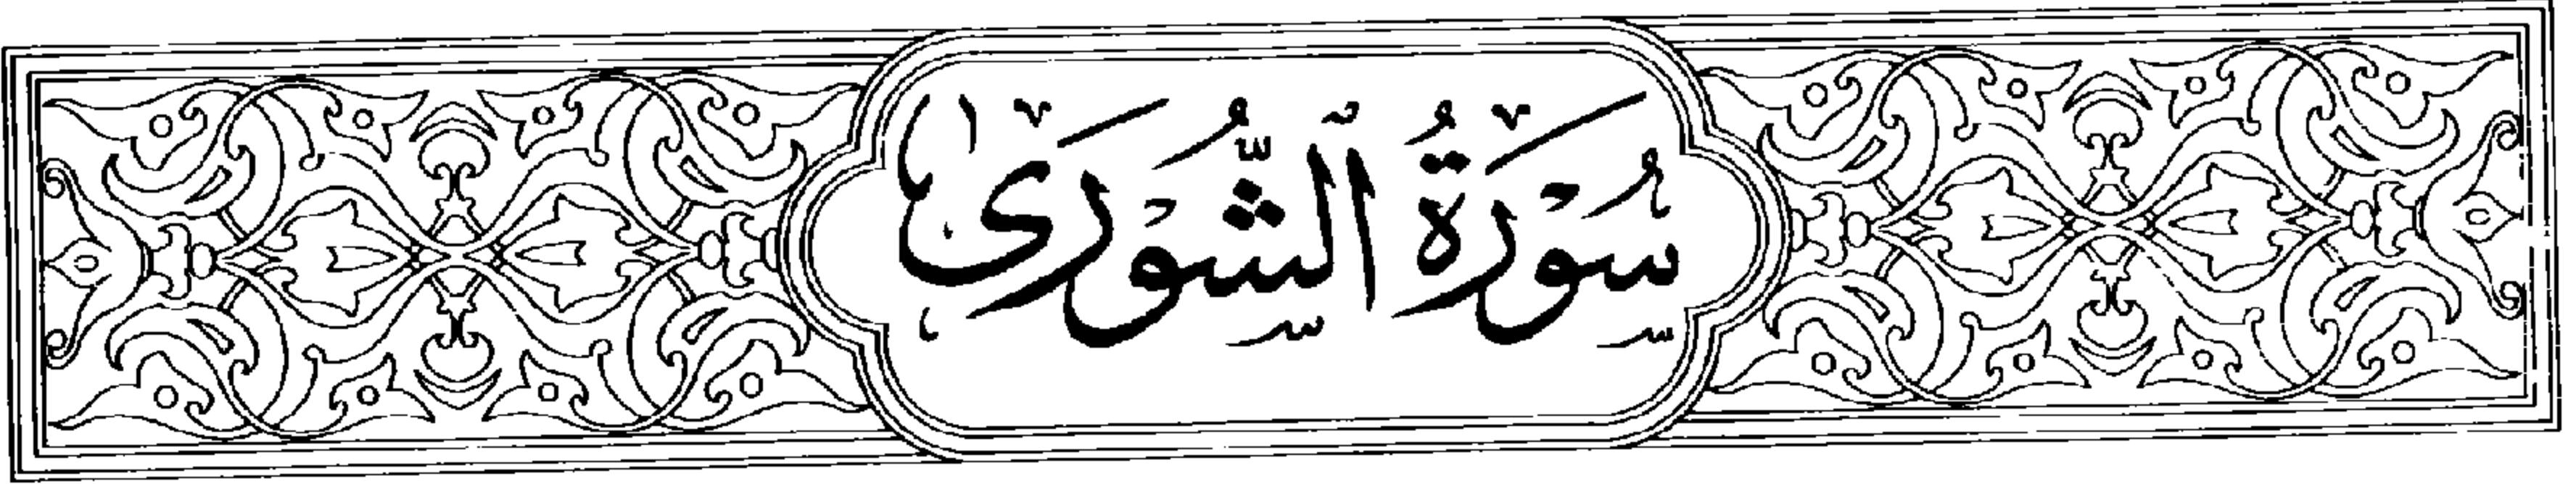 سُورَةُ ٱلشُّورَىٰ